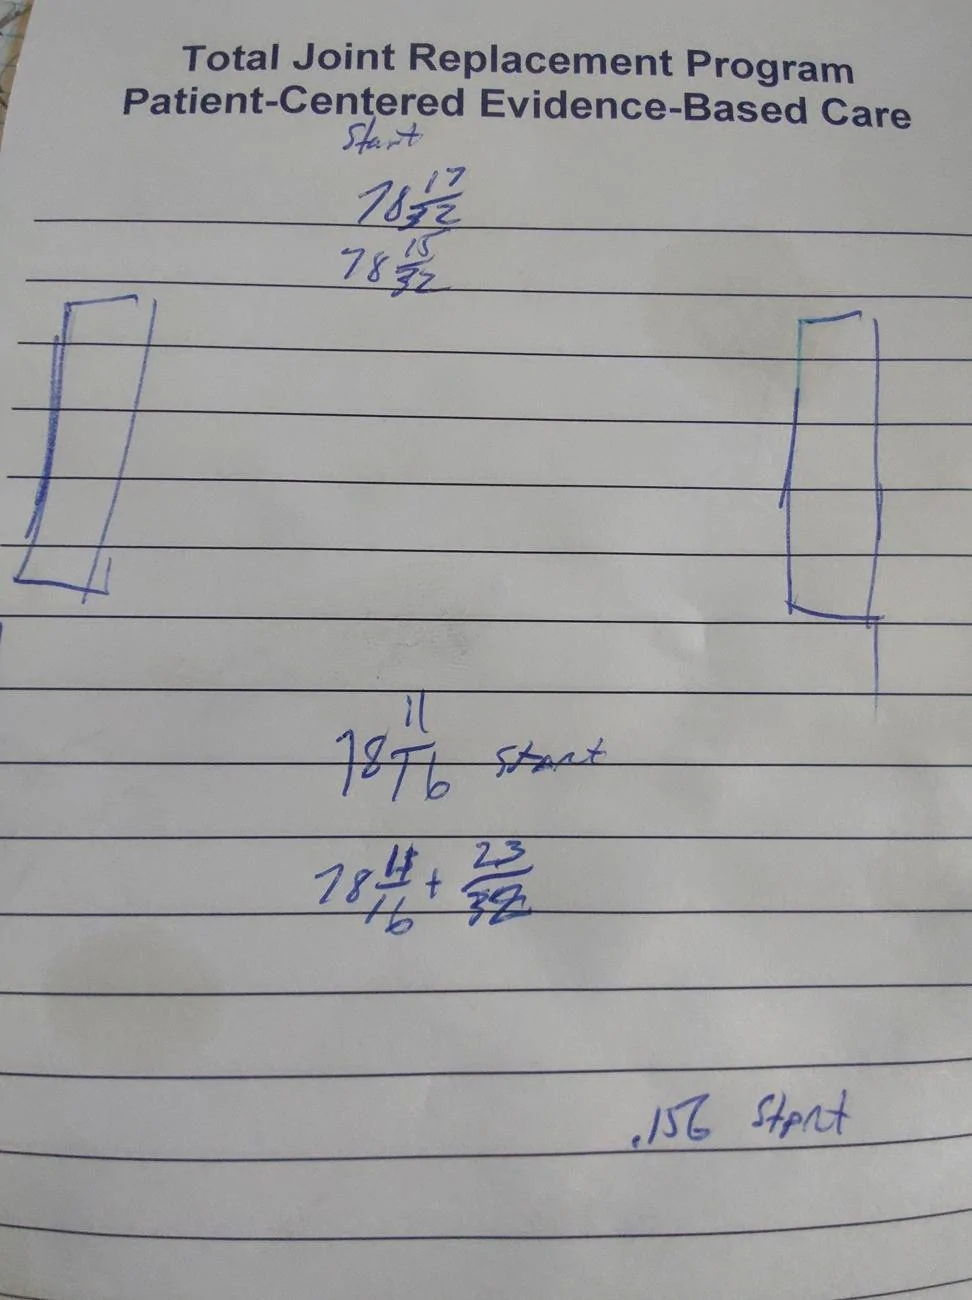 Total Joint Replacement Program
Patient-Centered Evidence-Based Care
Start
78 17/32
78 15/32
78 11/16 start
78 11/16 + 23/32
.156 Start